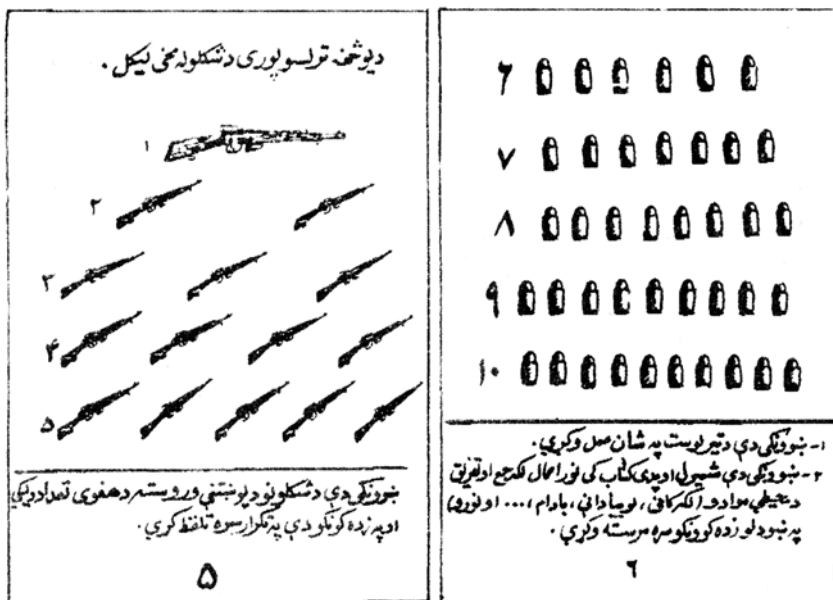 د یو څخه تر لسو پوری د شکلو له مخی لیکل.
۱
۲
۳
۴
۵
ښوونکی دې د شکلونو د پوښتنې وروسته د هغوی تعداد ولیکي
او په زده کونکو دې په تکرار سره تلفظ کړي.
۵
۶
۷
۸
۹
۱۰
۱- ښوونکی دې د تیر لوست په شان عمل وکړي.
۲- ښوونکی دې شمیرل او پدې کتاب کی نور اعمال لکه جمع او تفریق
د محیطي موادو (لکه کاڼي، لوبیا دانې، بادام، ... او نورو)
په ښودلو زده کوونکو سره مرسته وکړي.
۶